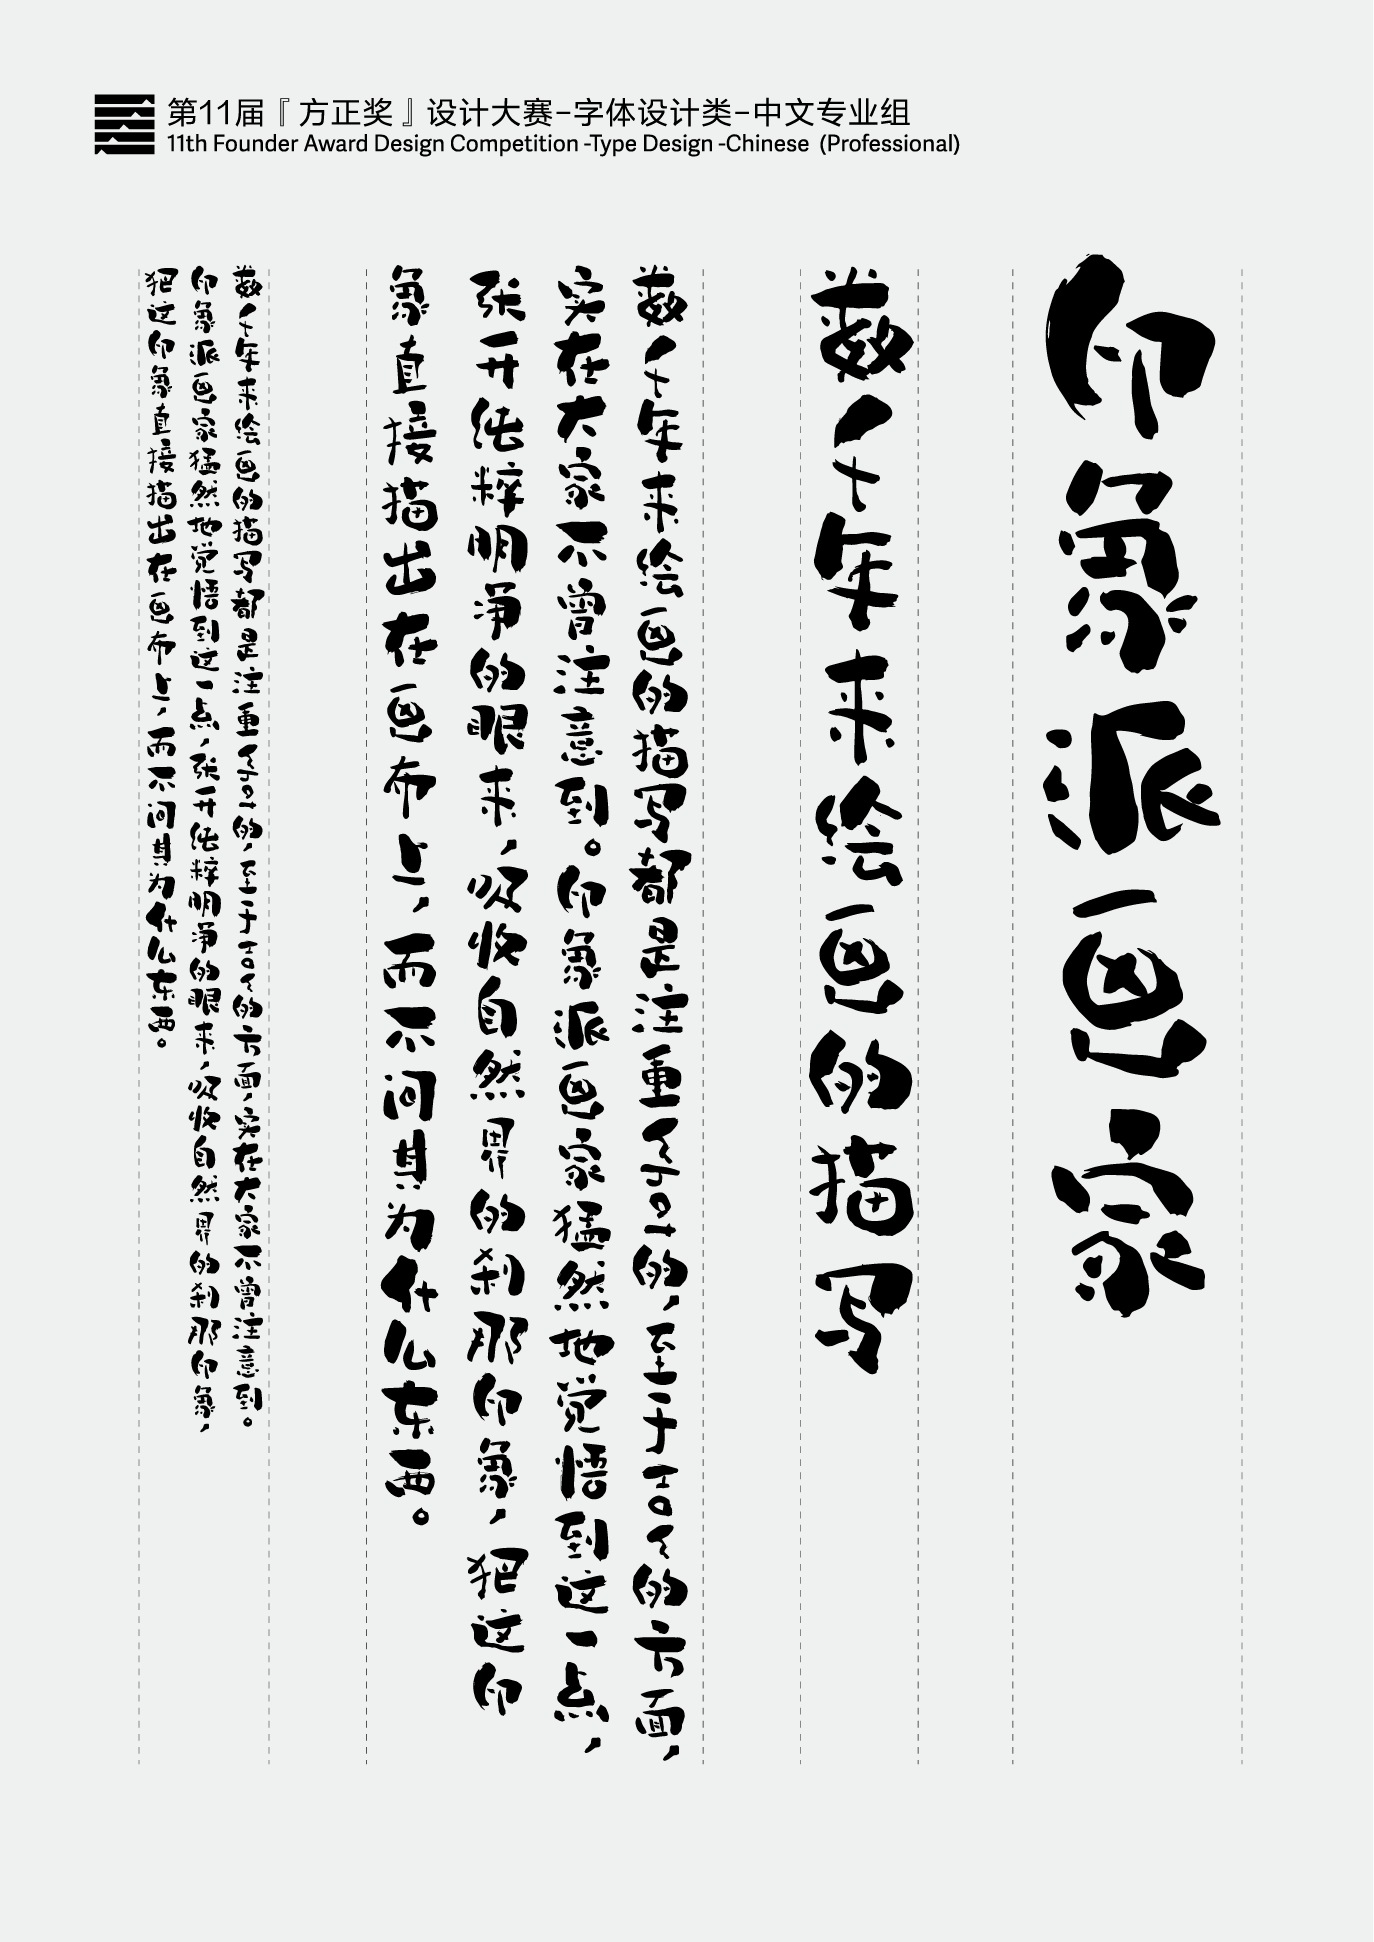 第11届『方正奖』设计大赛-字体设计类-中文专业组
11th Founder Award Design Competition -Type Design -Chinese (Professional)
印象派画家
数千年来绘画的描写
数千年来绘画的描写都是注重的，至于的方面，
实在大家不曾注意到。印象派画家猛然地觉悟到这一点，
张开纯粹明净的眼来，吸收自然界的刹那印象，把这印
象直接描出在画布上，而不问其为什么东西。
数千年来绘画的描写都是注重的，至于的方面，实在大家不曾注意到。
印象派画家猛然地觉悟到这一点，张开纯粹明净的眼来，吸收自然界的刹那印象，
把这印象直接描出在画布上，而不问其为什么东西。